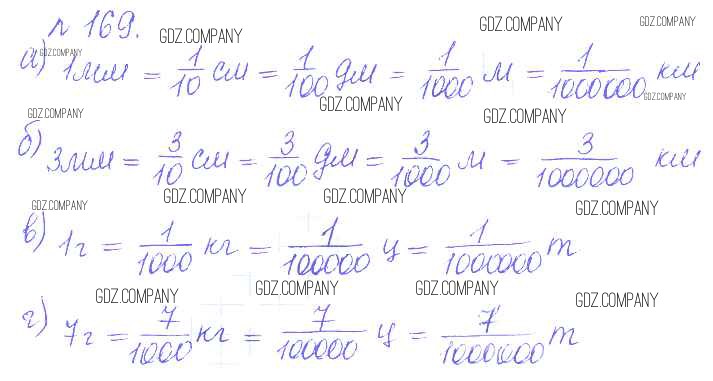 № 169.
GDZ.COMPANY GDZ.COMPANY GDZ.COMPANY
GDZ.COMPANY
а) 1мм = 1/10 см = 1/100 дм = 1/1000 м = 1/1000000 км
GDZ.COMPANY GDZ.COMPANY
GDZ.COMPANY GDZ.COMPANY
б) 3мм = 3/10 см = 3/100 дм = 3/1000 м = 3/1000000 км
GDZ.COMPANY GDZ.COMPANY GDZ.COMPANY GDZ.COMPANY
в) 1г = 1/1000 кг = 1/100000 ц = 1/1000000 т
GDZ.COMPANY GDZ.COMPANY GDZ.COMPANY GDZ.COMPANY
г) 7г = 7/1000 кг = 7/100000 ц = 7/1000000 т